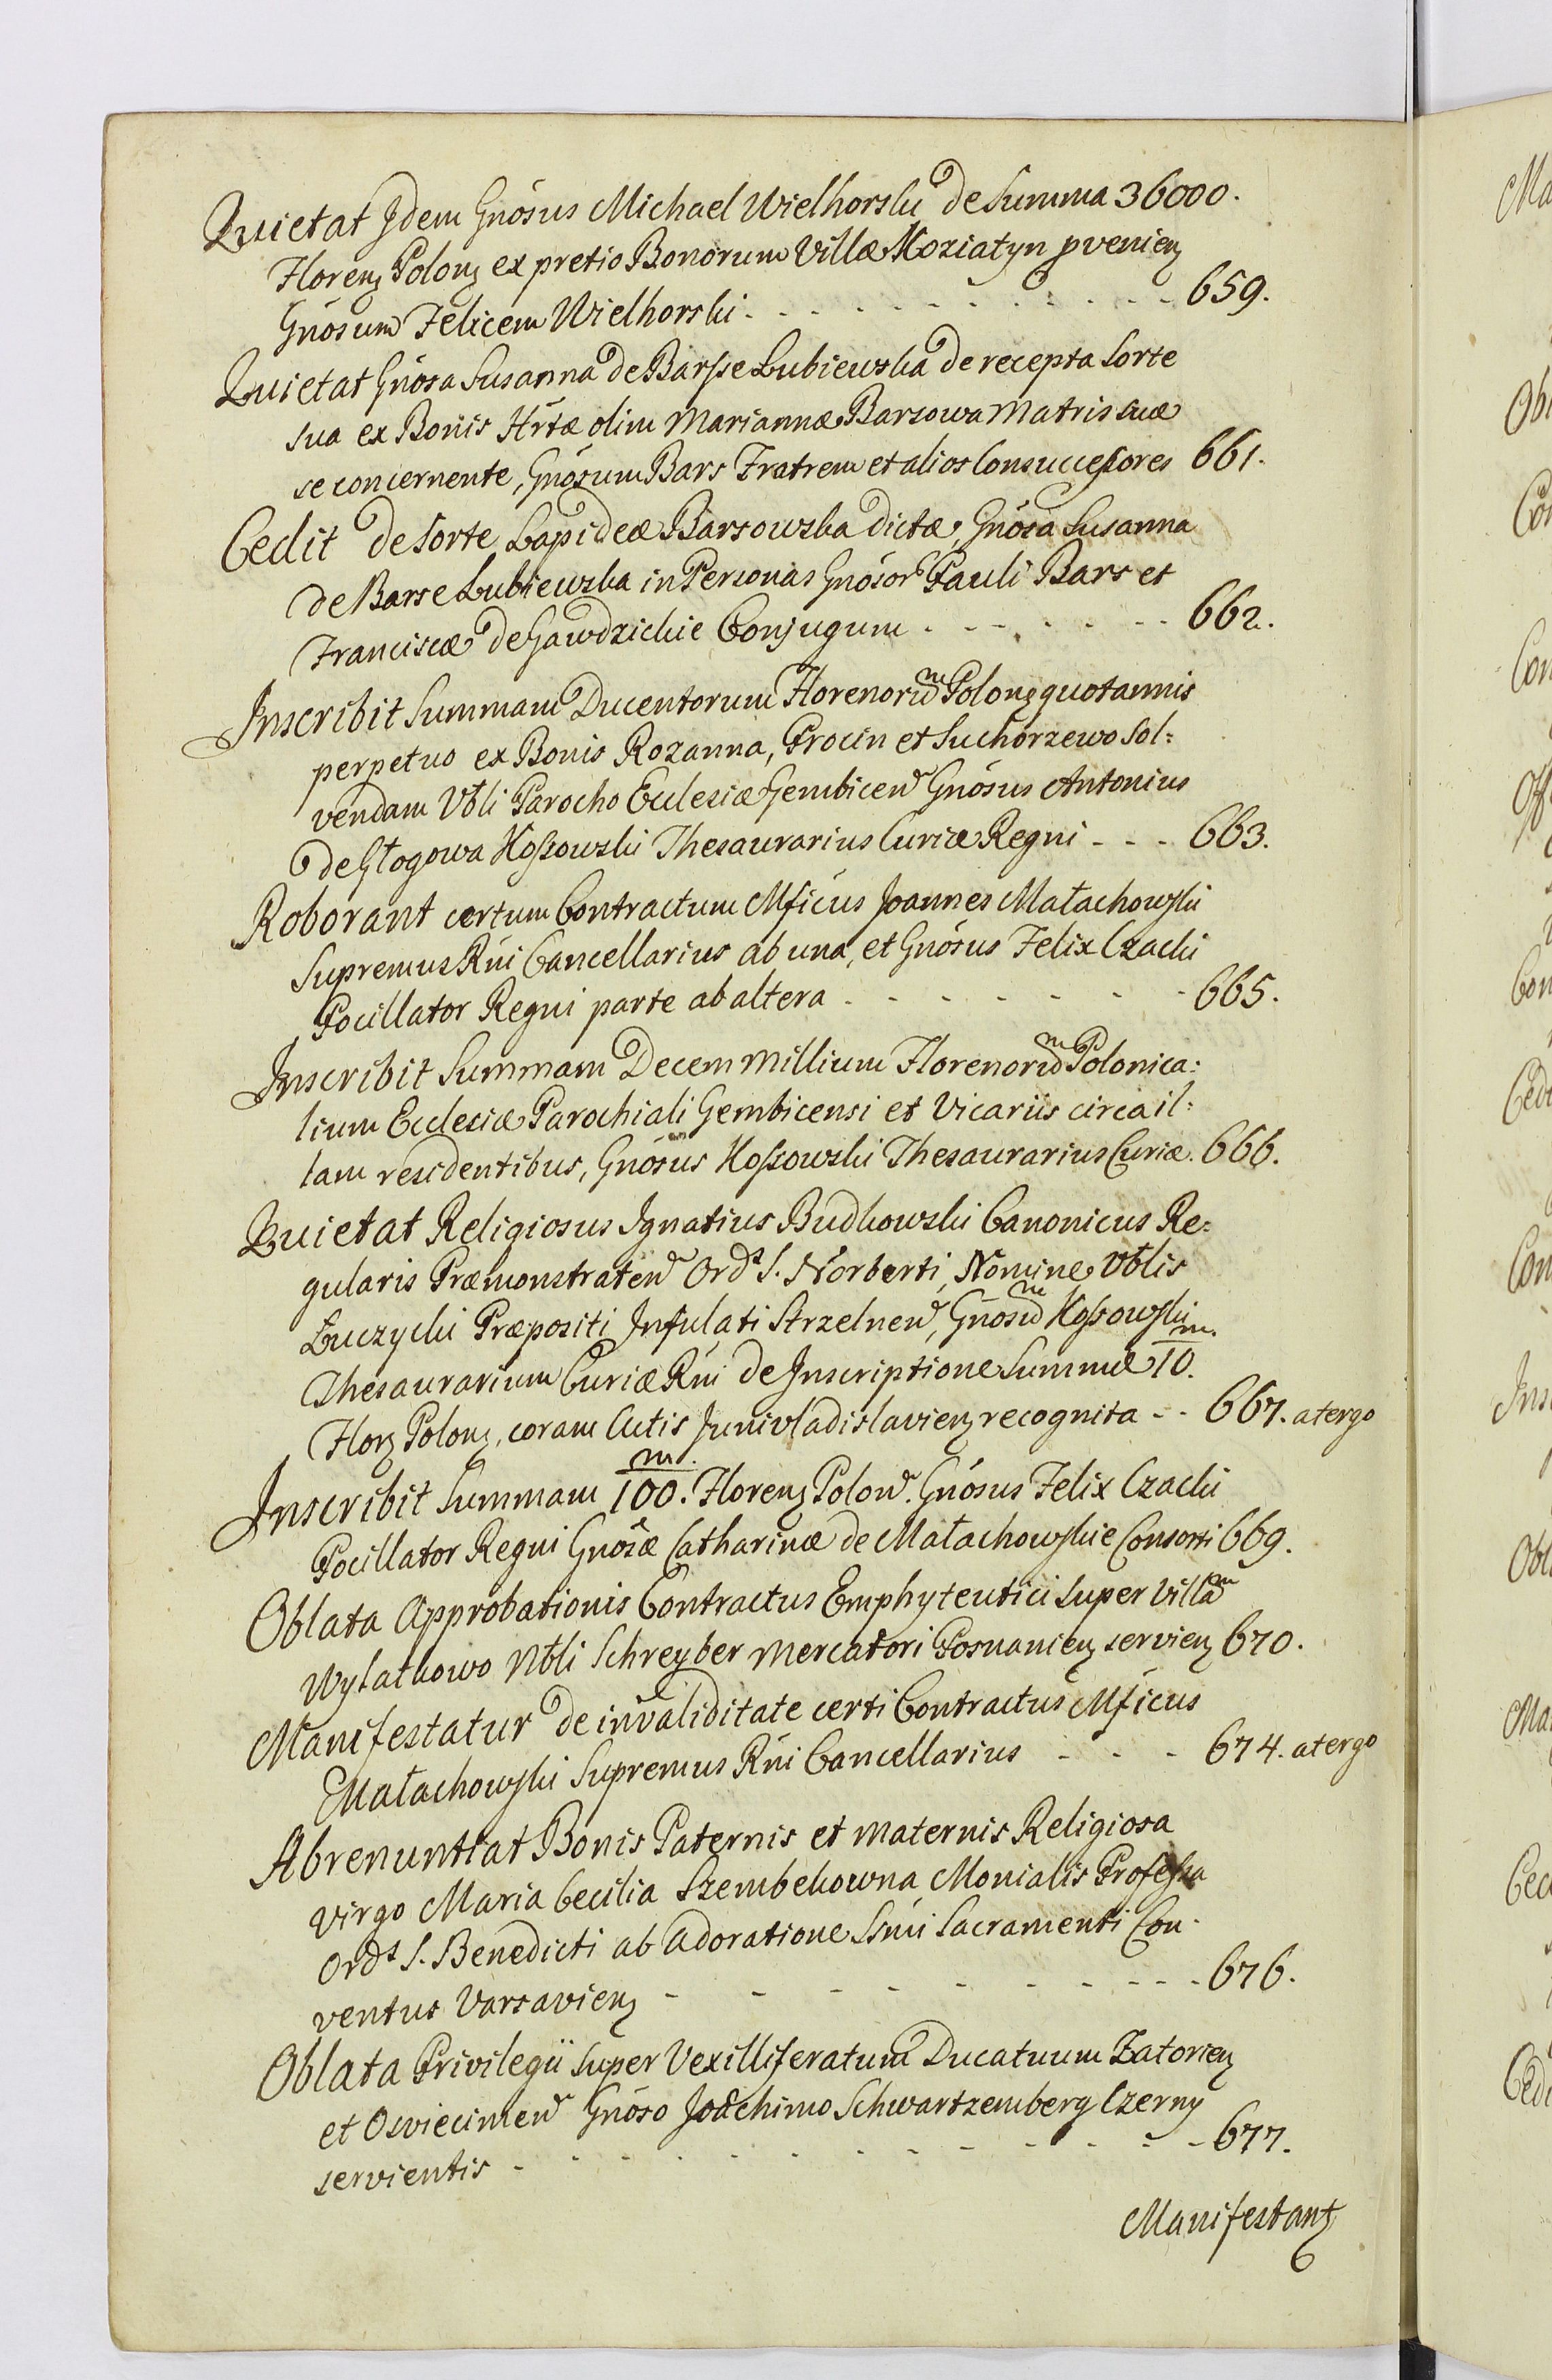 Quietat Idem Gnosus Michael Wielhorski de Summa 36000.
Floreng Polong ex pretio Bonorum Villæ Koziatyn pvenieng
Gnosum Felicem Wielhorski - - - - - - - - - 659.
Quietat Gnosa Susanna de Barsse Lubiewska de recepta Sorte
sua ex Bonis Hrtæ olim Mariannæ Barsowa Matris suæ
se concernente, Gnosum Bars Fratrem et alios Consuccessores 661.
Cedit de Sorte Lapideæ Barsowska dictæ, Gnosa Susanna
de Barse Lubiewska in Personas Gnosor Pauli Bars et
Franciscæ de Gawdzickie Conjugum - - - - - - 662.
Inscribit Summam Ducentorum Florenorum Polong quotannis
perpetuo ex Bonis Rozanna, Procin et Suchorzewo Sol:
vendam Vbli Parocho Ecclesiæ Gembicen Gnosus Antonius
de Głogowa Kossowski Thesaurarius Curiæ Regni - - - 663.
Roborant certum Contractum Mficus Joannes Małachowski
Supremus Rni Cancellarius ab una, et Gnosus Felix Czacki
Pocillator Regni parte ab altera - - - - - - - 665.
Inscribit Summam Decem Millium Florenorum Polonica:
lium Ecclesiæ Parochiali Gembicensi et Vicariis circa il:
lam residentibus, Gnosus Kossowski Thesaurarius Curiæ. 666.
Quietat Religiosus Ignatius Budkowski Canonicus Re:
gularis Præmonstraten Ords S. Norberti, Nomine Vblis
Łuczycki Præpositi Infulati Strzelnen, Gnosum Kossowski
Thesaurarium Curiæ Rni de Inscriptione Summæ 10. m.
Florg Polong, coram Actis Junivladislavieng recognita - - 667. a tergo
Inscribit Summam 100. m. Floreng Polon. Gnosus Felix Czacki
Pocillator Regni Gnosæ Catharinæ de Małachowskie Consorti 669.
Oblata Approbationis Contractus Emphyteutici super Villam
Wylatkowo Nbli Schreyber Mercatori Posnanieng servieng 670.
Manifestatur de invaliditate certi Contractus Mficus
Małachowski Supremus Rni Cancellarius - - - 674. a tergo
Abrenuntiat Bonis Paternis et Maternis Religiosa
Virgo Maria Cecilia Szembekowna Monialis Professa
Ords S. Benedicti ab Adoratione Ssmi Sacramenti Con:
ventus Varsavieng - - - - - - - - - 676.
Oblata Privilegii super Vexilliferatum Ducatuum Zatorieng
et Osviecimen Gnoso Joachimo Schwartzemberg Czerny
servientis - - - - - - - - - - - 677.
Manifestant